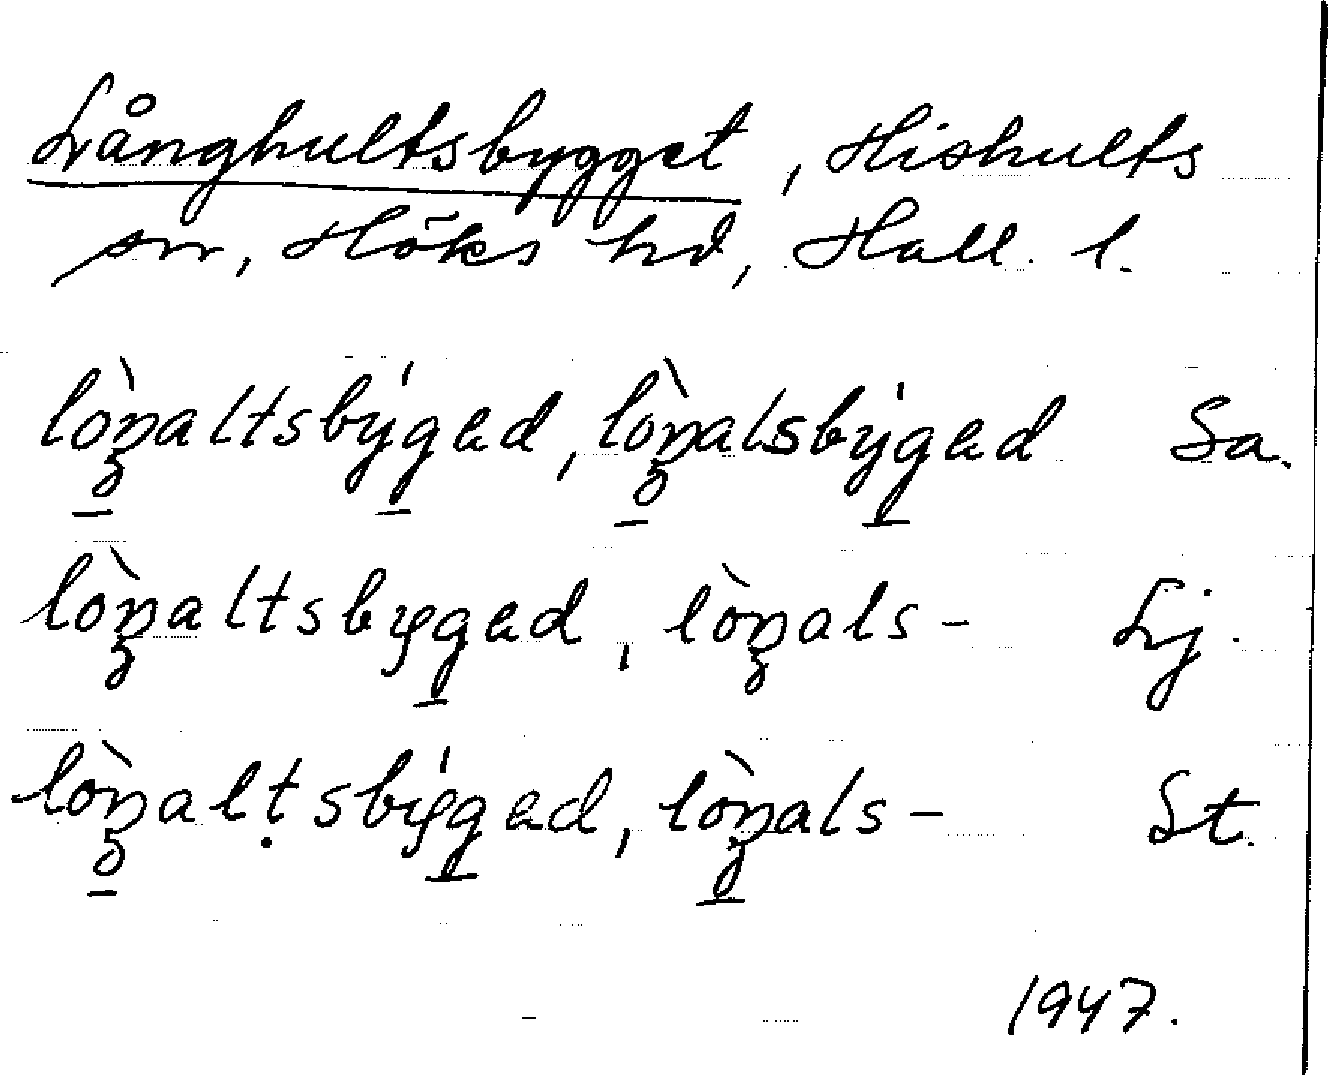 Långhultsbygget, Hishults
sn, Höks hd, Hall. l.
lòŋaltsbýgad, lòŋalsbýgad Sa.
lòŋaltsbygad, lòŋals- Lj.
lòŋalṭsbýgad, lòŋals- St.
1947.